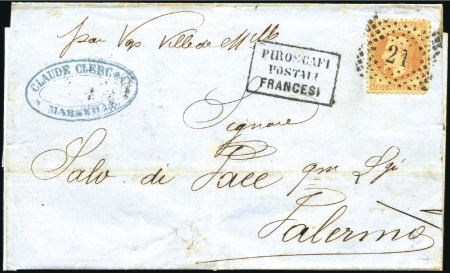 par Vap Ville de
CLAUDE CLERC & Cie
MARSEILLE
PIROSCAFI
POSTALI
FRANCESI
21
Signore
Salv di Pace qm Lgi
Palermo